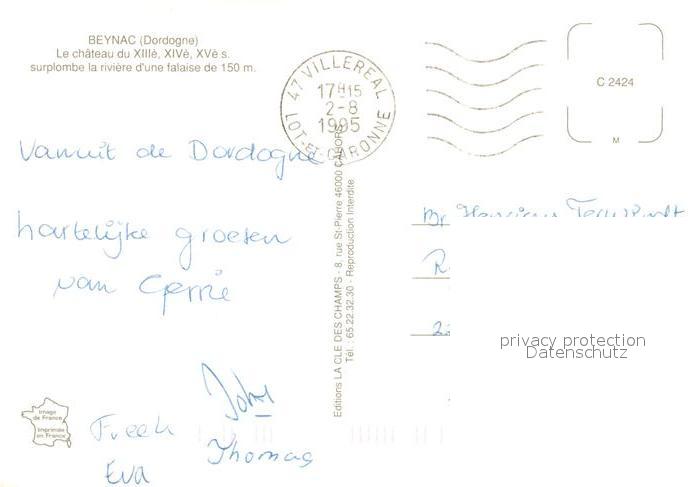 BEYNAC (Dordogne)
Le château du XIIIè, XIVè, XVè s.
surplombe la rivière d'une falaise de 150 m.
47 VILLEREAL
17H15
2-8
1995
LOT-et-GARONNE
C 2424
M
Vanuit de Dordogne
hartelijke groeten
van Gerrie
John
Freek
Thomas
Eva
Editions LA CLE DES CHAMPS - 8, rue St-Pierre 46000 CAHORS
Tél. : 65.22.32.30 - Reproduction Interdite
R
privacy protection
Datenschutz
Image
de France
Imprimée
en France